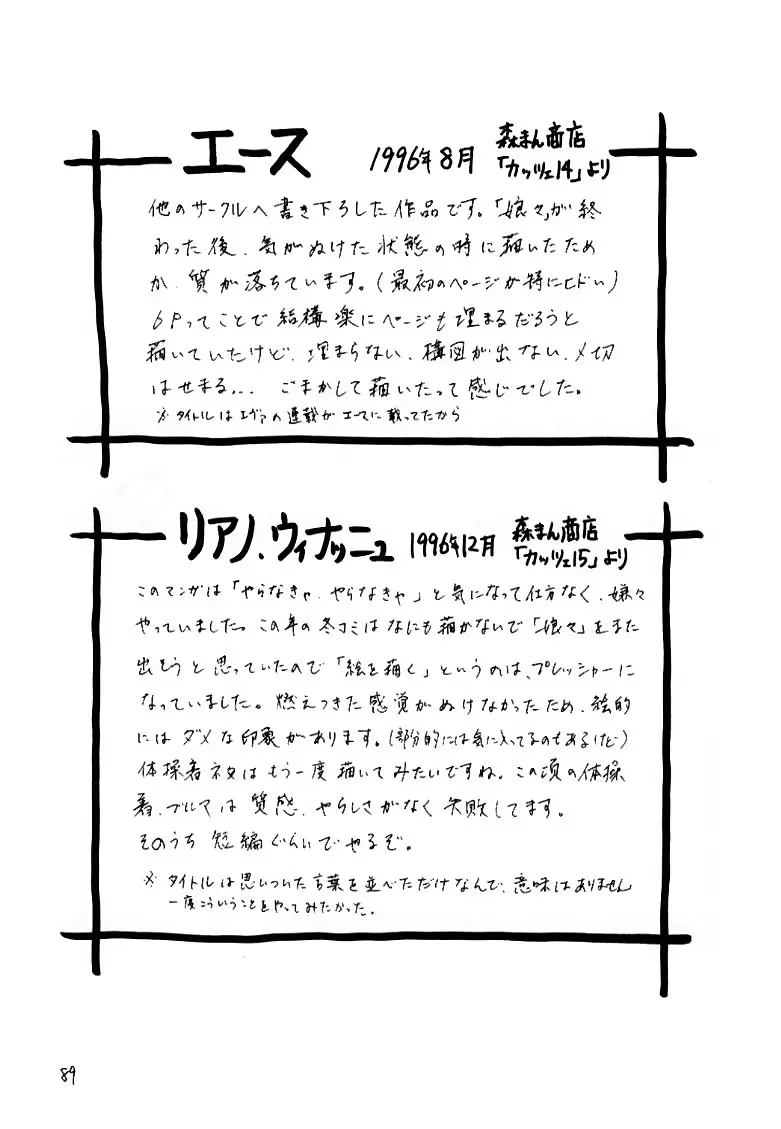 エース 1996年8月 森まん商店
「カッツェ14」より
他のサークルへ書き下ろした作品です。「娘々」が終
わった後、気がぬけた状態の時に描いたため
か、質が落ちています。(最初のページが特にヒドい)
6Pってことで結構楽にページも埋まるだろうと
描いていたけど、埋まらない、構図が出ない、〆切
はせまる... ごまかして描いたって感じでした。
※タイトルはエヴァの連載がエースに載ってたから
リアノ、ウィナッニュ 1996年12月 森まん商店
「カッツェ15」より
このマンガは「やらなきゃ、やらなきゃ」と気になって仕方なく、嫌々
やっていました。この年の冬コミはなにも描かないで「娘々」をまた
出そうと思っていたので「絵を描く」というのは、プレッシャーに
なっていました。燃えつきた感覚がぬけなかったため、絵的
にはダメな印象があります。(部分的には気に入ってるのもあるけど)
体操着ネタはもう一度描いてみたいですね。この頃の体操
着、ブルマは質感、やらしさがなく失敗してます。
そのうち短編ぐらいでやるぞ。
※タイトルは思いついた言葉を並べただけなんで、意味はありません
一度こういうことをやってみたかった。
89